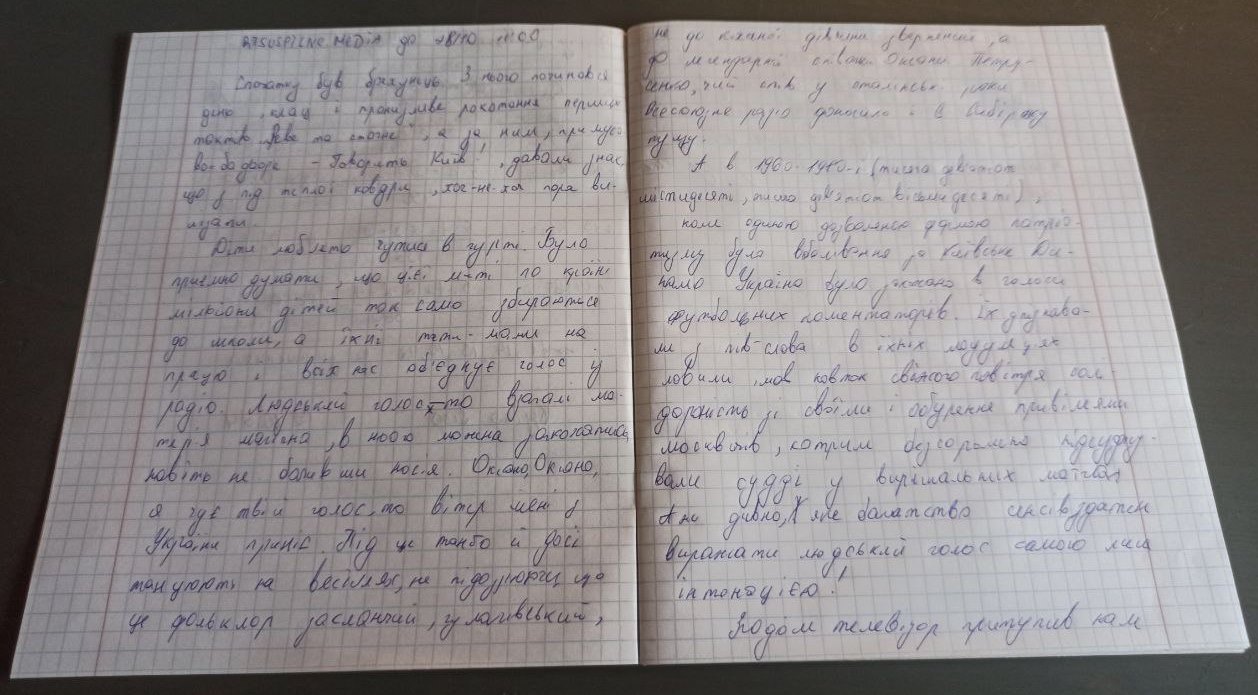 R7SUSPILNE.MEDIA до 28/10 11:00
Спочатку був брехунець. З нього починався
день, слащ і пронизливе рокотання перших
тактів „Реве та стогне", а за ним, примусо
во-бадьоре – Говорить Київ!, давали знак
що з під теплої ковдри, хоч-не-хоч пора ви-
лізати
Діти люблять чутись в гурті. Було
приємно думати, що цієї миті по країні
мільйони дітей так само збираються
до школи, а їхні тати-мами на
працю і всіх нас об'єднує голос із
радіо. Людський голос – то взагалі ма-
терія магічна, в нього можна закохатись
навіть не бачивши носія. Оксано, Оксано,
я чую твій голос, то вітер мені з
України приніс. Під це танго й досі
танцюють на весіллях, не підозрюючи що
це фольклор засланчий, гулагівський,
не до коханої дівчини звернення, а
до легендарної співачки Оксани Петру-
сенко, чий спів у сталінські роки
Всесоюзне радіо доносило і в сибірську
тундру.
А в 1960-1980-і (тисяча дев'ятсот
шістдесяті, тисяча дев'ятсот вісімдесяті),
коли єдиною дозволеною формою патріо-
тизму було вболівання за Київське Ди-
намо Україна було заховано в голоси
футбольних коментаторів. Їх впізнава-
ли з пів-слова в їхніх модуляціях
ловили, мов ковток свіжого повітря солі-
дарність зі своїми і обурення привілеями
москвичів, котрим безсоромно підсуджу-
вали судді у вирішальних матчах
Ану дивно, яке багатство сенсів здатен
виражати людський голос самою лиш
інтонацією!
Згодом телевізор притупив нам